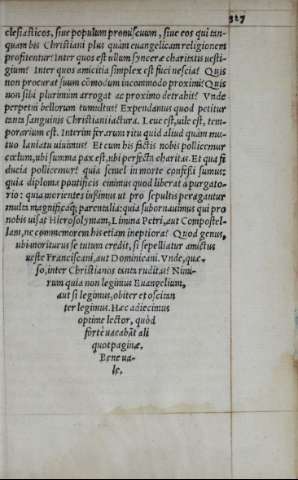 327
clesiasticos, siue populum promiscuum, siue eos qui tan-
quam bis Christiani plus quàm euangelicam religionem
profitentur? Inter quos est ullum synceræ charitatis uesti-
gium? Inter quos amicitia simplex est fuci nescia? Quis
non procurat suum cōmodum incommodo proximi? Quis
non sibi plurimum arrogat ac proximo detrahit? Vnde
perpetui bellorum tumultus? Expendamus quod petitur
tanta sanguinis Christiani iactura. Leue est, uile est, tem-
porarium est. Interim ferarum ritu quid aliud quàm mu-
tuo laniatu uiuimus? Et cum his factis nobis pollicemur
cœlum, ubi summa pax est, ubi perfecta charitas. Et qua fi
ducia pollicemur? quia semel in morte confessi sumus:
quia diploma pontificis emimus quod liberat à purgato-
rio: quia morientes iussimus ut pro sepultis peragantur
multa magnificaq; parentalia: quia subornauimus qui pro
nobis uisat Hierosolymam, Limina Petri, aut Compostel-
lam, ne commemorem his etiam ineptiora? Quod genus,
ubi moriturus se tutum credit, si sepelliatur amictus
ueste Franciscani, aut Dominicani. Vnde, quæ-
so, inter Christianos tanta ruditas? Nimi-
rum quia non legimus Euangelium,
aut si legimus, obiter et oscitan
ter legimus. Hæc adiecimus
optime lector, quòd
fortè uacabāt ali
quot paginæ.
Bene ua-
le.